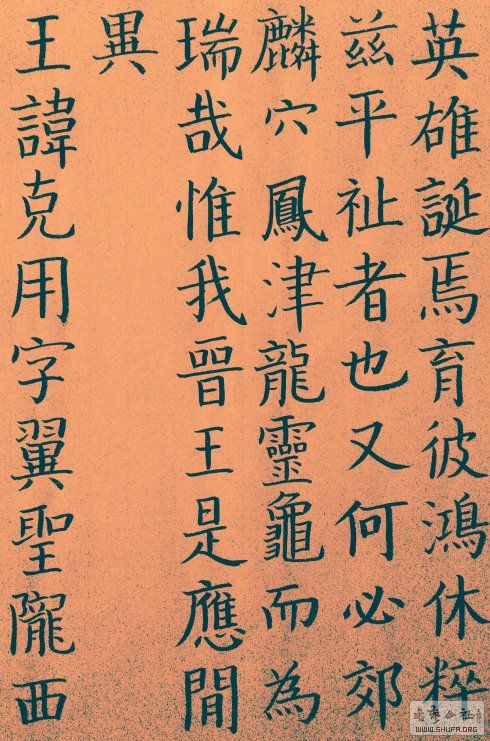 英雄誕焉育彼鴻休粹
茲平祉者也又何必郊
麟穴鳳津龍靈龜而為
瑞哉惟我晉王是應間
異
王諱克用字翼聖隴西
WWW.SHUFA.ORG